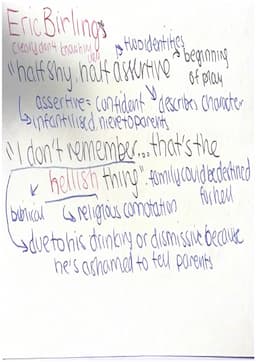 Eric Birling
clearly don't know him well
two identities
"half shy, half assertive
beginning of play
assertive = confident
describes character
infantilised, naive to parents
"I don't remember... that's the
hellish thing"
family could be destined for hell
biblical
religious connotation
due to his drinking or dismissive because
he's ashamed to tell parents